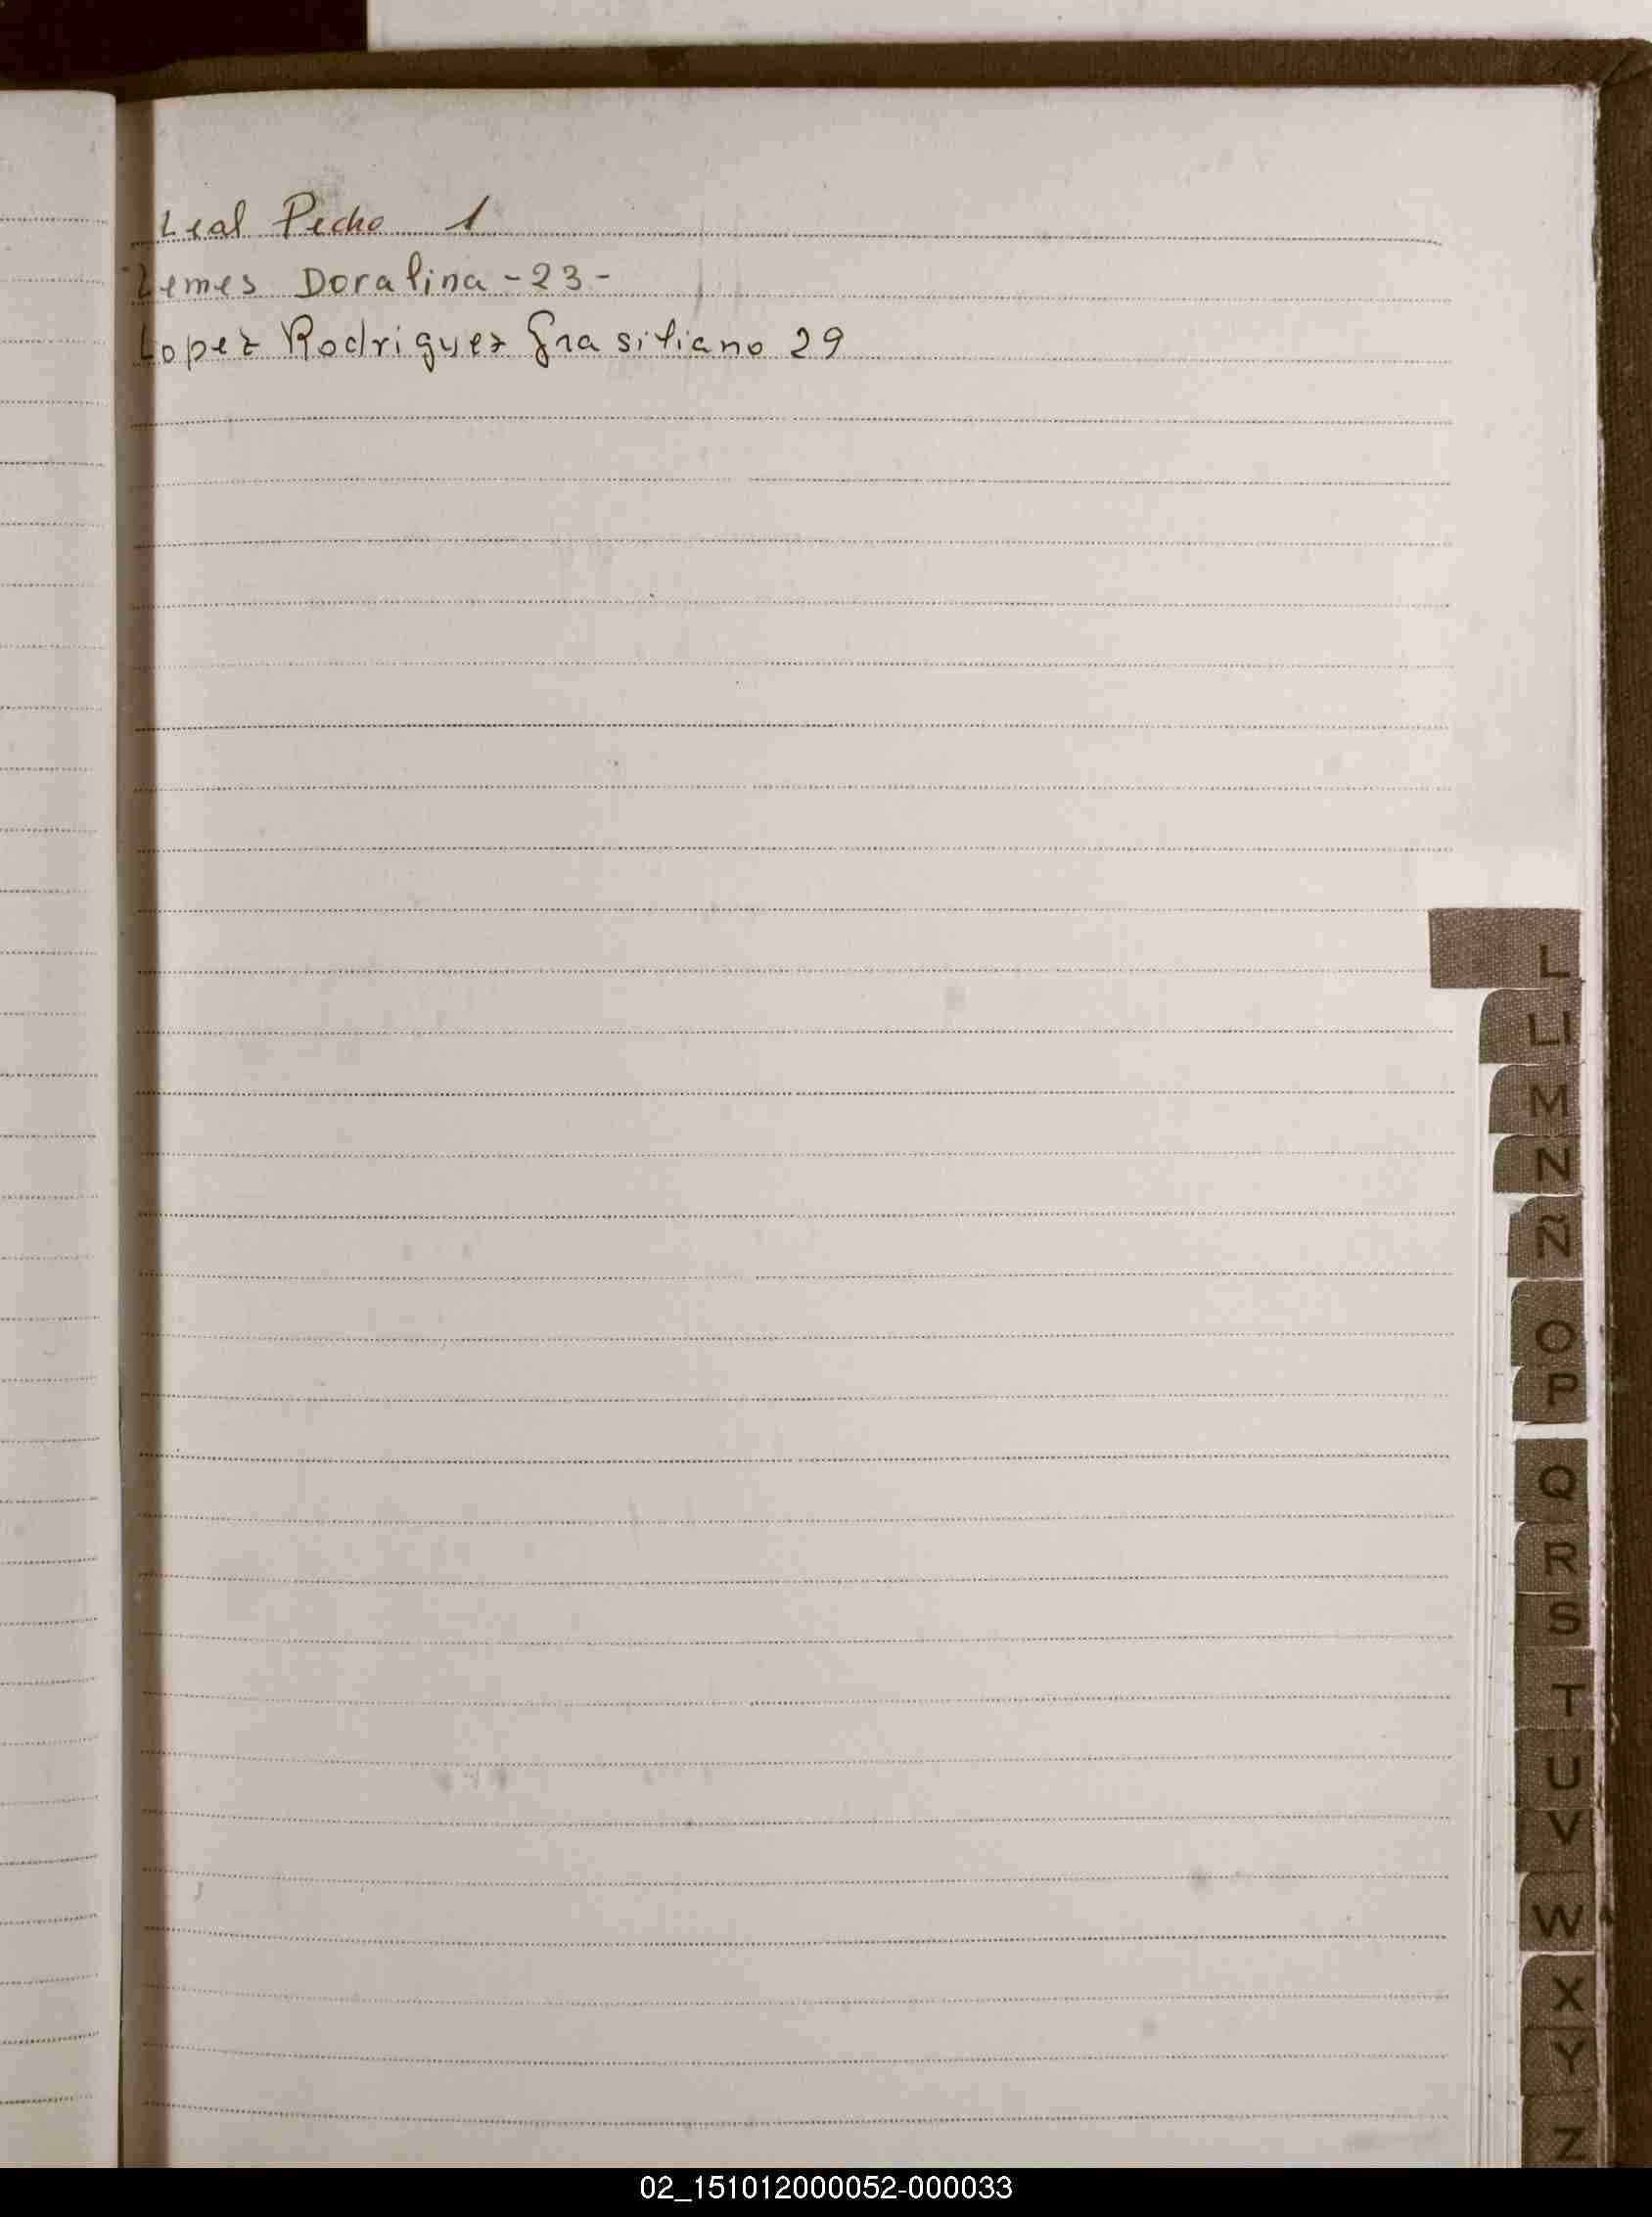 Leal Pedro 1
Lemes Doralina - 23 -
Lopez Rodriguez Grasiliano 29
L
Ll
M
N
Ñ
O
P
Q
R
S
T
U
V
W
X
Y
Z
02_151012000052-000033